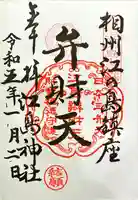 相州江の島鎮座
弁財天
奉拝江島神社
令和五年一月二日